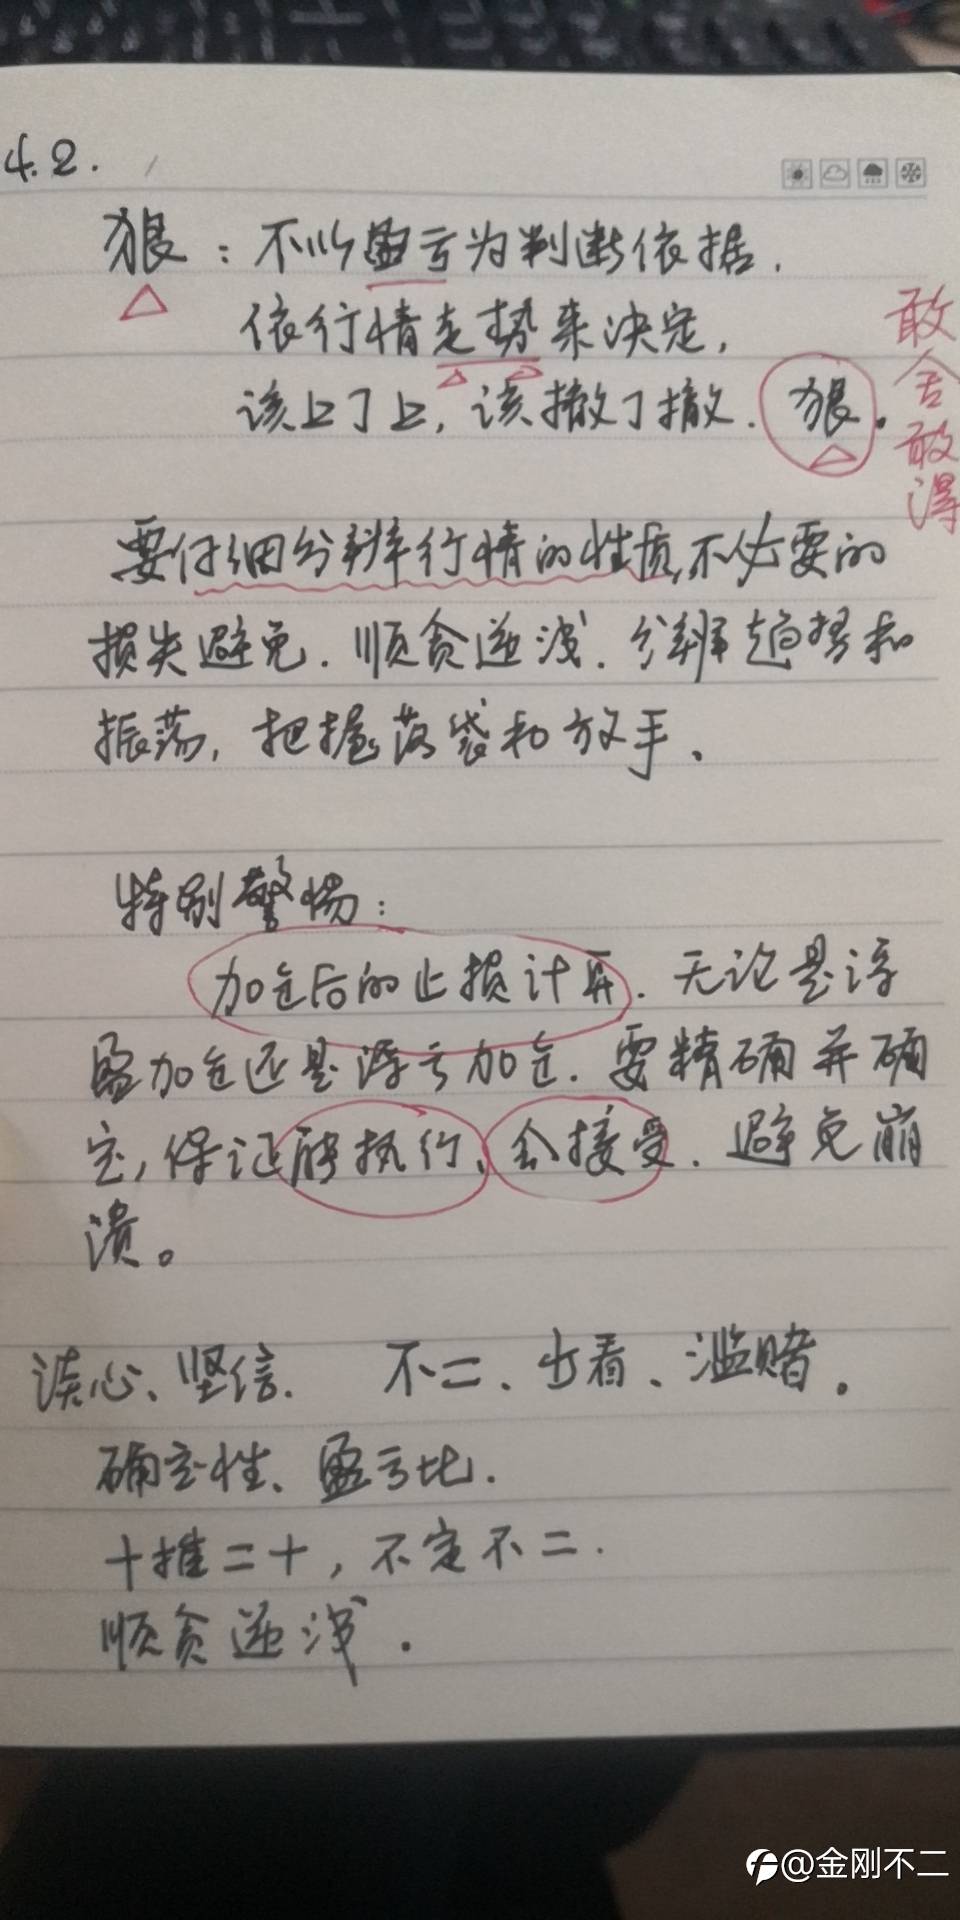 4.2.
狠：不以盈亏为判断依据.
依行情走势来决定,
该上了上,该撤了撤.狠.
敢舍敢得
要仔细分辨行情的性质,不必要的
损失避免.顺贪逆浅.分辨趋势和
振荡,把握落袋和放手.
特别警惕:
加仓后的止损计算.无论是浮
盈加仓还是浮亏加仓.要精确并确
定,保证能执行、会接受.避免崩
溃。
读心、坚信. 不二、少看、滥赌.
确定性、盈亏比.
十推二十,不定不二.
顺贪逆浅.
@金刚不二